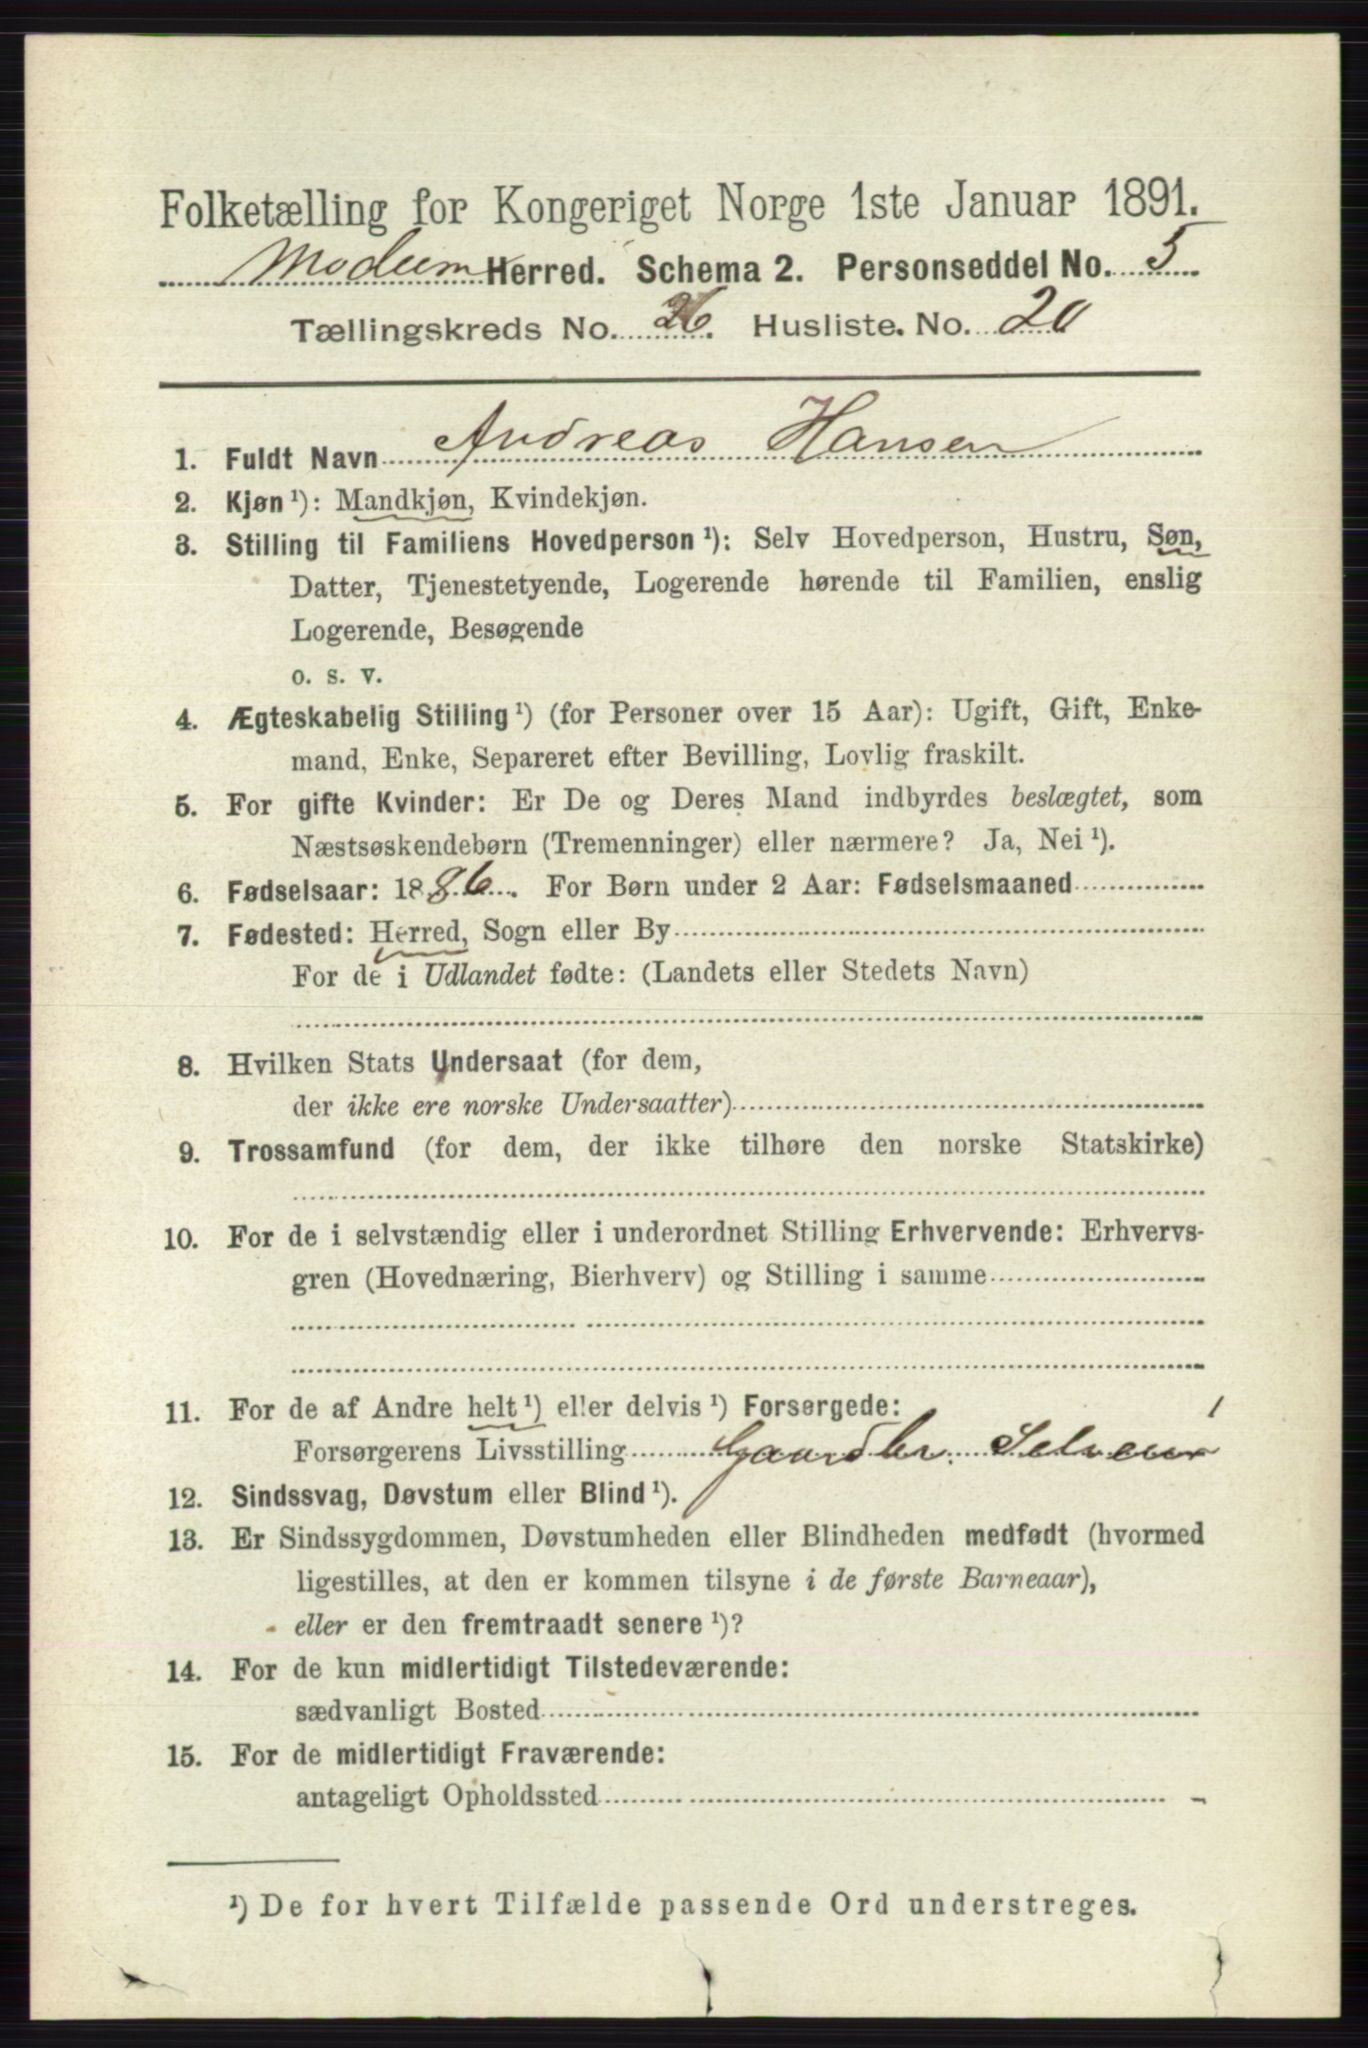 Folketælling for Kongeriget Norge 1ste Januar 1891.
Modum Herred. Schema 2. Personseddel No. 5
Tællingskreds No. 26. Husliste. No. 20
1. Fuldt Navn Andreas Hansen
2. Kjøn ¹): Mandkjøn, Kvindekjøn.
3. Stilling til Familiens Hovedperson ¹): Selv Hovedperson, Hustru, Søn,
Datter, Tjenestetyende, Logerende hørende til Familien, enslig
Logerende, Besøgende
o. s. v.
4. Ægteskabelig Stilling ¹) (for Personer over 15 Aar): Ugift, Gift, Enke-
mand, Enke, Separeret efter Bevilling, Lovlig fraskilt.
5. For gifte Kvinder: Er De og Deres Mand indbyrdes beslægtet, som
Næstsøskendebørn (Tremenninger) eller nærmere? Ja, Nei ¹).
6. Fødselsaar: 1886. For Børn under 2 Aar: Fødselsmaaned
7. Fødested: Herred, Sogn eller By
For de i Udlandet fødte: (Landets eller Stedets Navn)
8. Hvilken Stats Undersaat (for dem,
der ikke ere norske Undersaatter)
9. Trossamfund (for dem, der ikke tilhøre den norske Statskirke)
10. For de i selvstændig eller i underordnet Stilling Erhvervende: Erhvervs-
gren (Hovednæring, Bierhverv) og Stilling i samme
11. For de af Andre helt ¹) eller delvis ¹) Forsørgede:
Forsørgerens Livsstilling Gaardbr. Selveier
12. Sindssvag, Døvstum eller Blind ¹).
13. Er Sindssygdommen, Døvstumheden eller Blindheden medfødt (hvormed
ligestilles, at den er kommen tilsyne i de første Barneaar),
eller er den fremtraadt senere ¹)?
14. For de kun midlertidigt Tilstedeværende:
sædvanligt Bosted
15. For de midlertidigt Fraværende:
antageligt Opholdssted
¹) De for hvert Tilfælde passende Ord understreges.